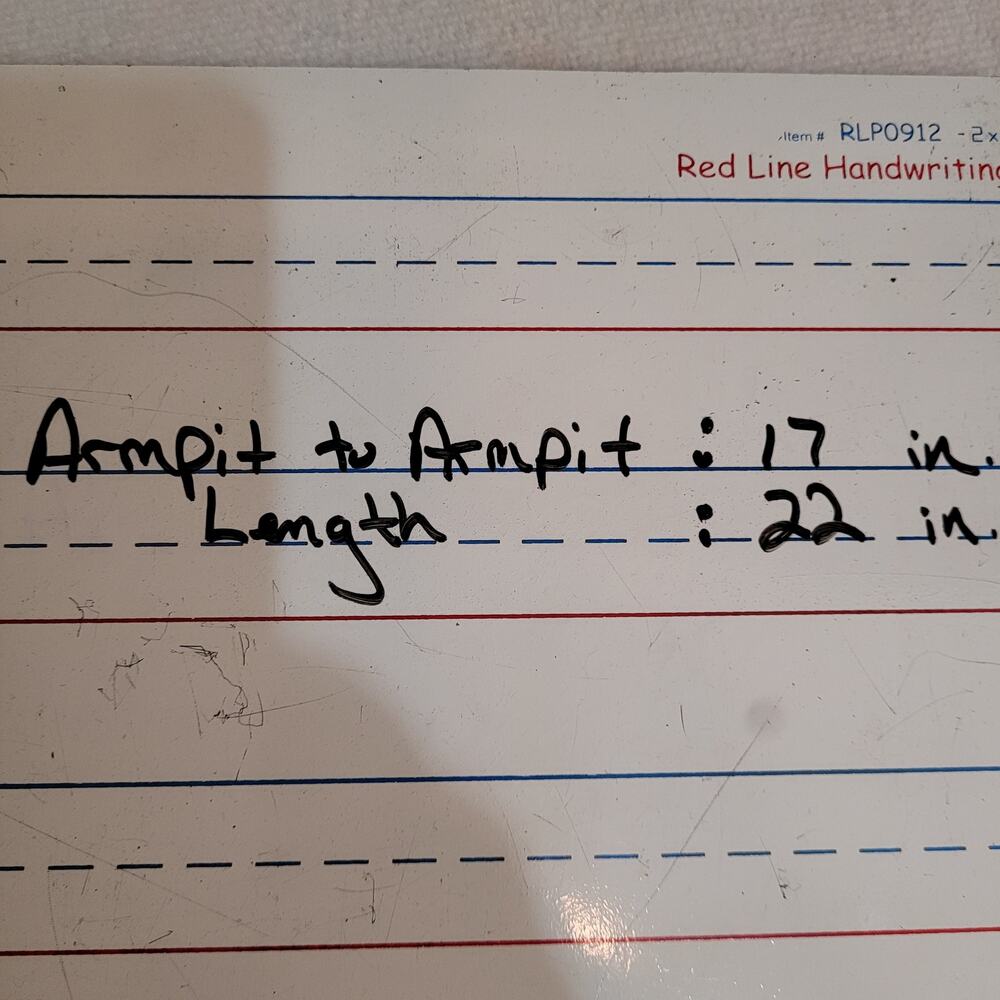 Item # RLP0912 - 2x
Red Line Handwriting
Armpit to Armpit : 17 in.
Length : 22 in.